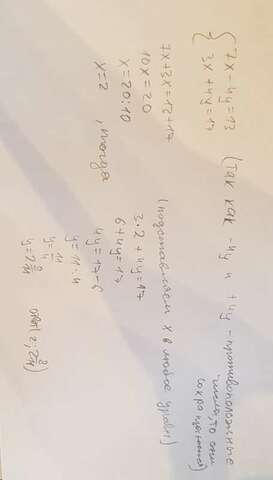 { 7x - 4y = 13
3x + 4y = 17
(Так как -4y и +4y - противоположные
числа, то они
сокращаются)
7x + 3x = 13 + 17
10x = 20
x = 20 : 10
x = 2, тогда
(подставляем x в любое уравн)
3 · 2 + 4y = 17
6 + 4y = 17
4y = 17 - 6
y = 11 : 4
y = 11/4
y = 2 3/4